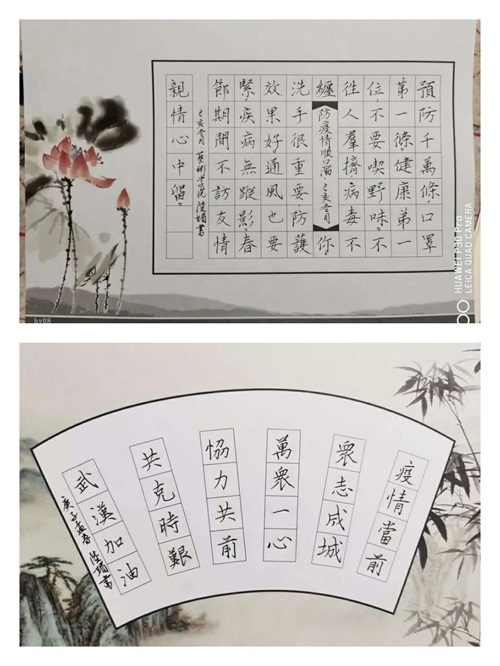 預防千萬條,口罩
第一條,健康弟一
位,不要喫野味。不
徃人羣擠,病毒不
纏 防疫情順口溜 己亥冬月 你
洗手很重要,防護
效果好。通風也要
緊,疾病無蹤影。春
節期間不訪友情
己亥冬月 書
親情心中留。
HUAWEI P30 Pro
LEICA QUAD CAMERA
hy08
疫情當前
衆志成城
萬衆一心
協力共前
共克時艱
武漢加油
庚子 春 書